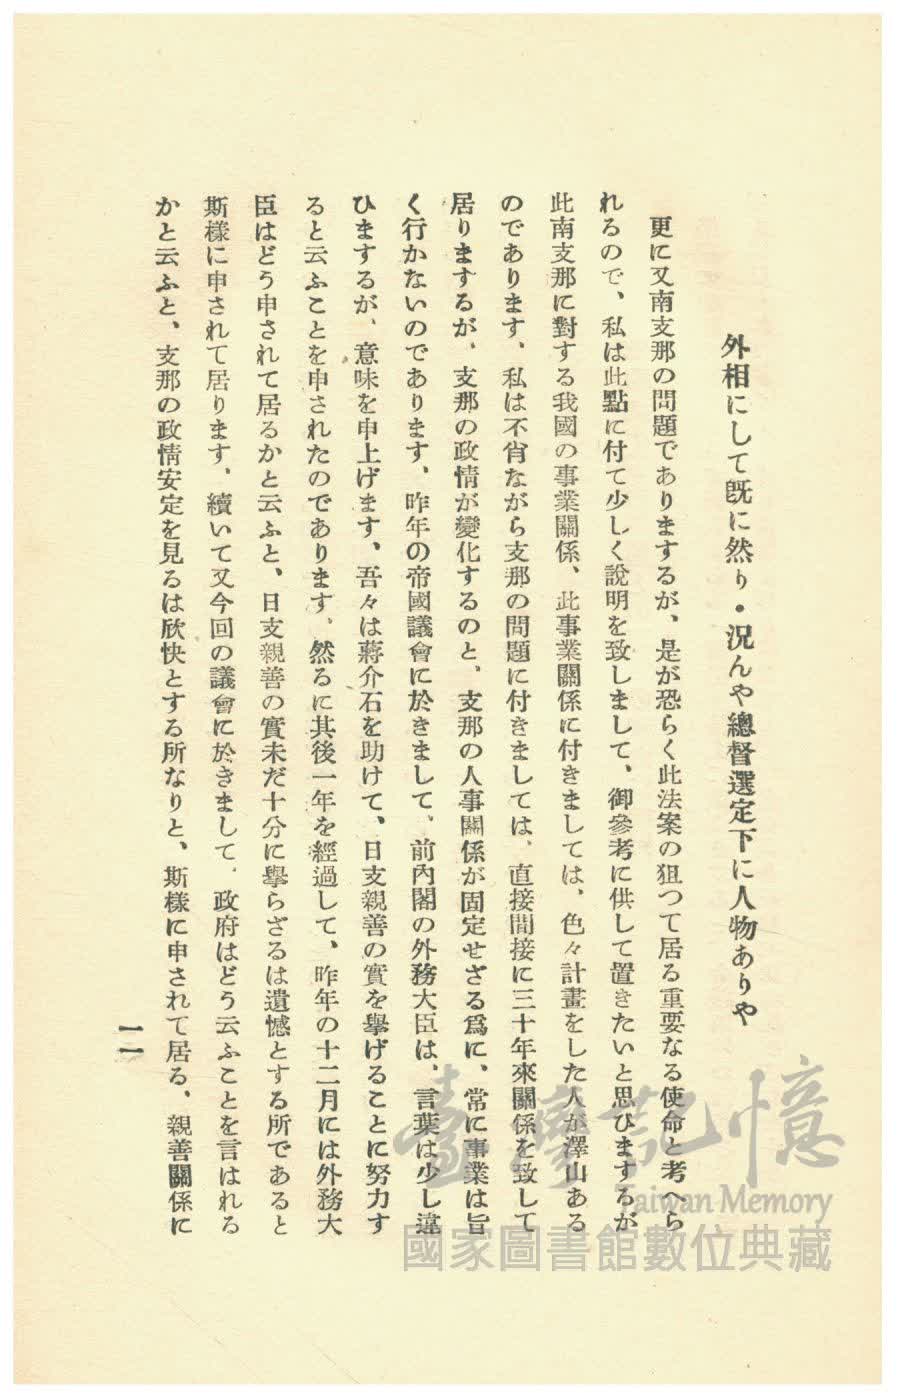 外相にして既に然り・況んや總督選定下に人物ありや
更に又南支那の問題でありまするが、是が恐らく此法案の狙つて居る重要なる使命と考へら
れるので、私は此點に付て少しく說明を致しまして、御參考に供して置きたいと思ひまするが
此南支那に對する我國の事業關係、此事業關係に付きましては、色々計畫をした人が澤山ある
のであります、私は不肖ながら支那の問題に付きましては、直接間接に三十年來關係を致して
居りまするが、支那の政情が變化するのと、支那の人事關係が固定せざる爲に、常に事業は旨
く行かないのであります、昨年の帝國議會に於きまして、前內閣の外務大臣は、言葉は少し違
ひまするが、意味を申上げます、吾々は蔣介石を助けて、日支親善の實を擧げることに努力す
ると云ふことを申されたのであります、然るに其後一年を經過して、昨年の十二月には外務大
臣はどう申されて居るかと云ふと、日支親善の實未だ十分に擧らざるは遺憾とする所であると
斯樣に申されて居ります、續いて又今回の議會に於きまして、政府はどう云ふことを言はれる
かと云ふと、支那の政情安定を見るは欣快とする所なりと、斯樣に申されて居る、親善關係に
一一
臺灣記憶
Taiwan Memory
國家圖書館數位典藏